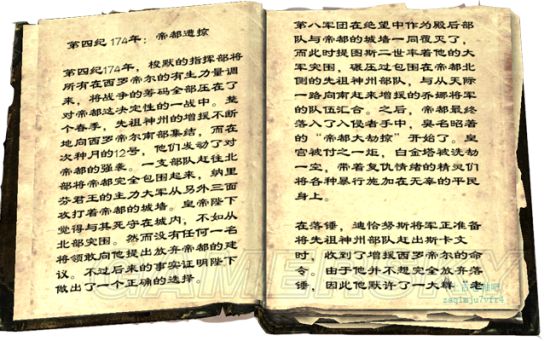 第四纪174年：帝都遭掠
第四纪174年，梭默的指挥部将
所有在西罗帝尔的有生力量调
来，将战争的筹码全部压在了
对帝都这决定性的一战中。整
个春季，先祖神州的增援不断
地向西罗帝尔南部集结，而在
次种月的12号，他们发动了对
帝都的强袭。一支部队赶往北
部将帝都完全包围起来，纳里
芬君王的主力大军从另外三面
攻打着帝都的城墙。皇帝陛下
觉得与其死守在城内，不如从
北部突围。然而没有任何一名
将领敢向他提出放弃帝都的建
议。不过后来的事实证明陛下
做出了一个正确的选择。
第八军团在绝望中作为殿后部
队与帝都的城墙一同覆灭了，
而此时提图斯二世率着他的大
军突围，碾压过包围在帝都北
侧的先祖神州部队，与从天际
一路向南赶来增援的乔娜将军
的队伍汇合。之后，帝都最终
落入了入侵者手中，臭名昭著
的“帝都大劫掠”开始了。皇
宫被付之一炬，白金塔被洗劫
一空，带着复仇情绪的精灵们
将各种暴行施加在无辜的平民
身上。
在落锤，迪恰努斯将军正准备
将先祖神州部队赶出斯卡文
时，收到了增援西罗帝尔的命
令。由于他并不想完全放弃落
锤，因此他默许了一大群“老
GAMERSKY
zaqimju7vfr4